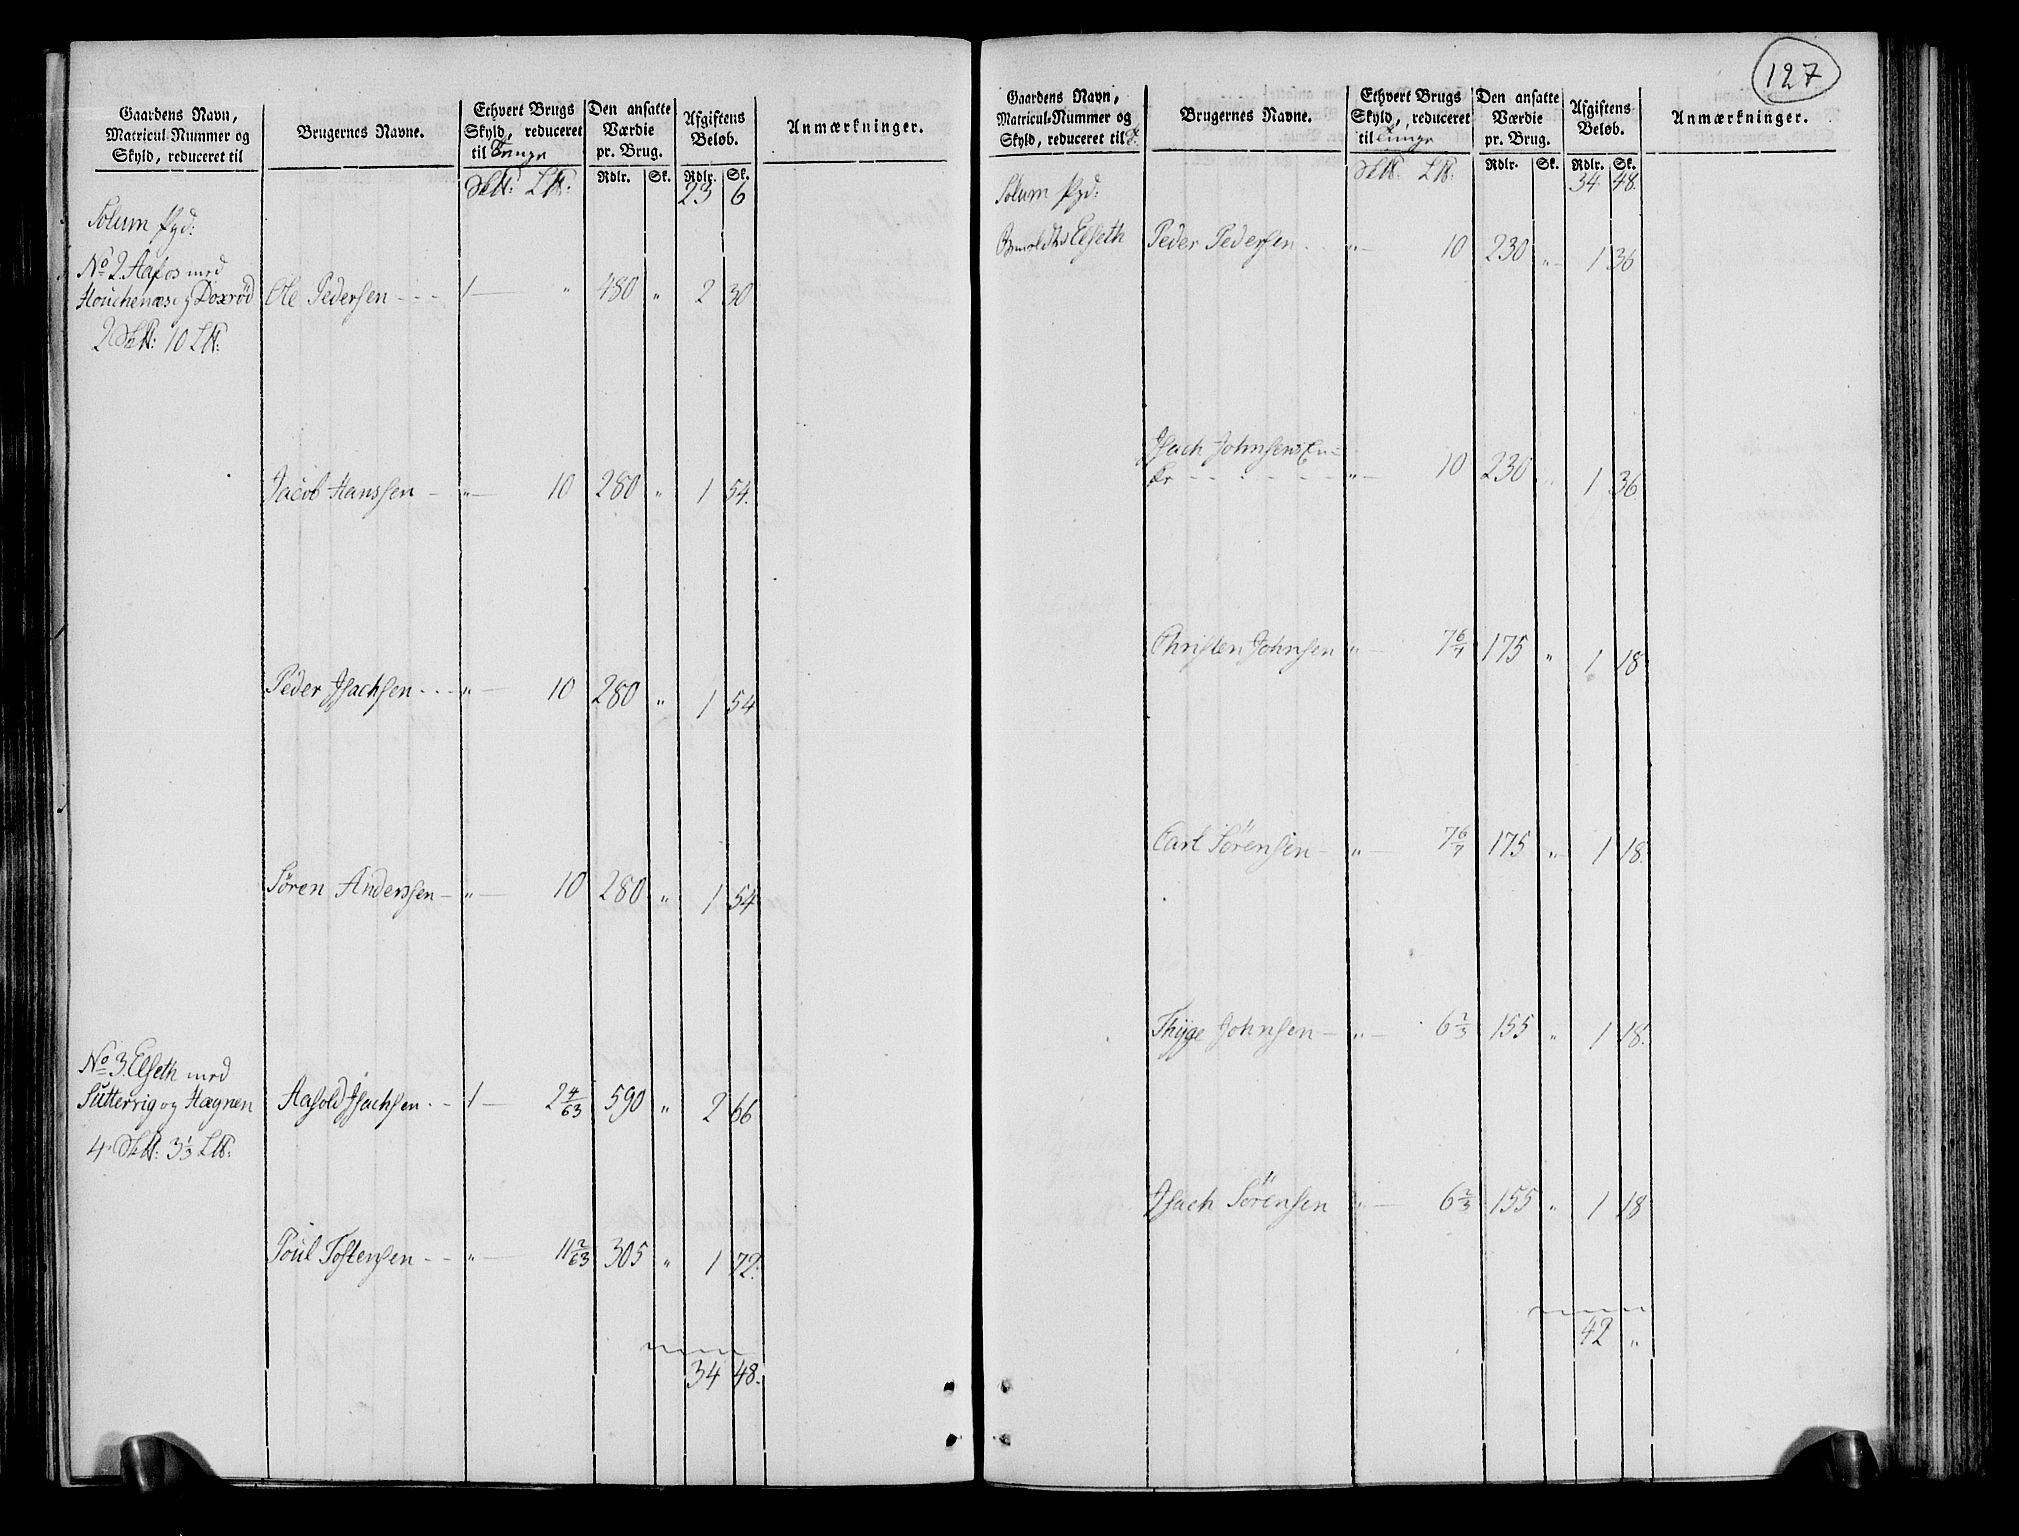 Gaardens Navn, Matricul-Nummer og Skyld, reduceret til
Brugernes Navne.
Ethvert Brugs Skyld, reduceret til Tunge
Den ansatte Værdie pr. Brug.
Afgiftens Beløb.
Anmærkninger.
Rdlr. Sk. Rdlr. Sk.
23 6
Solum
No 2. Aafos med
Houchenæs og Doxrød Ole Pedersen 1 " 480 " 2 30
2 10
Jacob Hanssen " 10 280 " 1 54.
Peder Isachsen " 10 280 " 1 54
Sören Anderssen " 10 280 " 1 54
No 3. Elseth med
Sutterrig og Hægnen Aasold Isachsen 1 2 4/63 590 " 2 66
4 3 1/3
Poul Tostensen " 11 2/63 305 " 1 72.
34 48.
127
Gaardens Navn, Matricul-Nummer og Skyld, reduceret til T.
Brugernes Navne.
Ethvert Brugs Skyld, reduceret til Tunge
Den ansatte Værdie pr. Brug.
Afgiftens Beløb.
Anmærkninger.
Rdlr. Sk. Rdlr. Sk.
34 48.
Solum
Elseth Peder Pedersen " 10 230 " 1 36
Isach Johnsens En-
ke " 10 230 " 1 36
Christen Johnsen " 7 6/7 175 " 1 18
Carl Sörensen " 7 6/7 175 " 1 18.
Thyge Johnsen " 6 2/3 155 " 1 18.
Isach Sörensen " 6 2/3 155 " 1 18
42 "